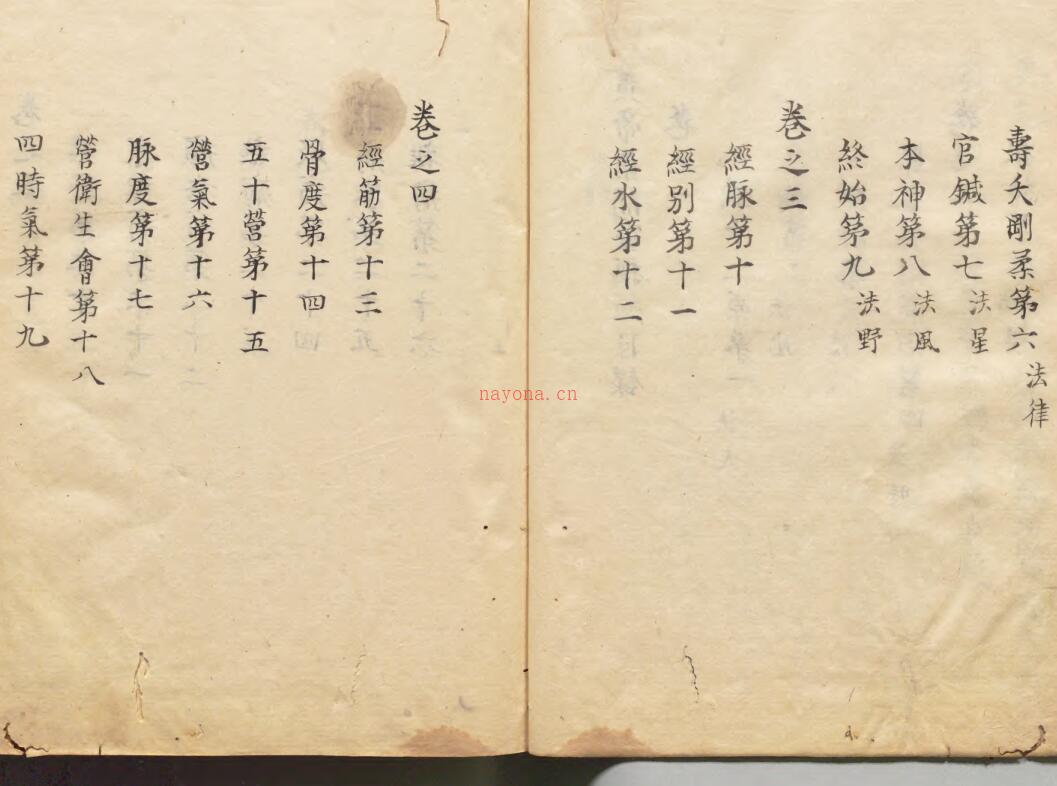 壽夭剛柔第六 法律
官鍼第七 法星
本神第八 法風
終始第九 法野
卷之三
經脉第十
經别第十一
經水第十二
卷之四
經筋第十三
骨度第十四
五十營第十五
營氣第十六
脉度第十七
營衛生會第十八
四時氣第十九
nayona.cn